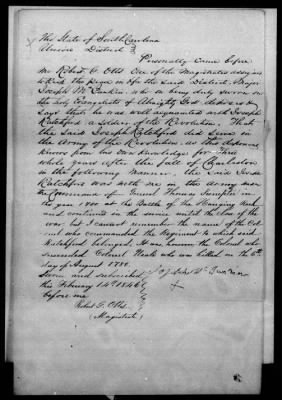 The State of South Carolina
District }
Personally Came before
me Robert G. Otts One of the Magistrates assigned
to keep the peace in &c for the said District Major
Joseph McJunkin who on being duly sworn on
the holy Evangelists of Almighty God deposes &
says that he was well acquainted with Joseph
Ratchford a soldier of the Revolution, That
the said Joseph Ratchford did serve in
the Army of the Revolution as this deponent
knows from his own knowledge for three
whole years After the fall of Charleston
in the following manner, the said Joseph
Ratchford was with me in the army under
the Command of General Thomas Sumpter in
the year 1780 at the Battle of the Hanging Rock
and continued in the service until the close of the
war, but I cannot remember the name of the Col
onel who commanded the Regiment to which said
Ratchford belonged. It was however the Colonel who
succeeded Colonel Neals who was killed on the 6th
day of August 1780
Sworn and subscribed } Joseph McJunkin
this February 14th 1846
before me
Robert G. Otts
(Magistrate)